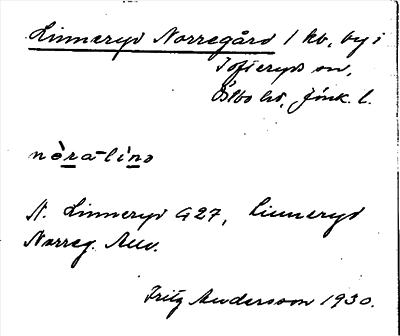 Linneryd Norregård 1 hb, by i
Tofteryds sn,
Östbo hd, Jönk. l.
nòra-líno
N. Linneryd G27, Linneryd
Norreg. Auv.
Fritz Andersson 1930.